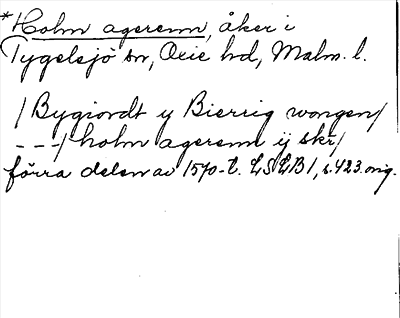 *Holm agerenn, åker i
Tygelsjö sn, Oxie hd, Malm. l.
/Bygiordt y Bierrig wongen/
---/holm agerenn ij skr/
förra delen av 1570-t. LSLB 1, s. 423. orig.